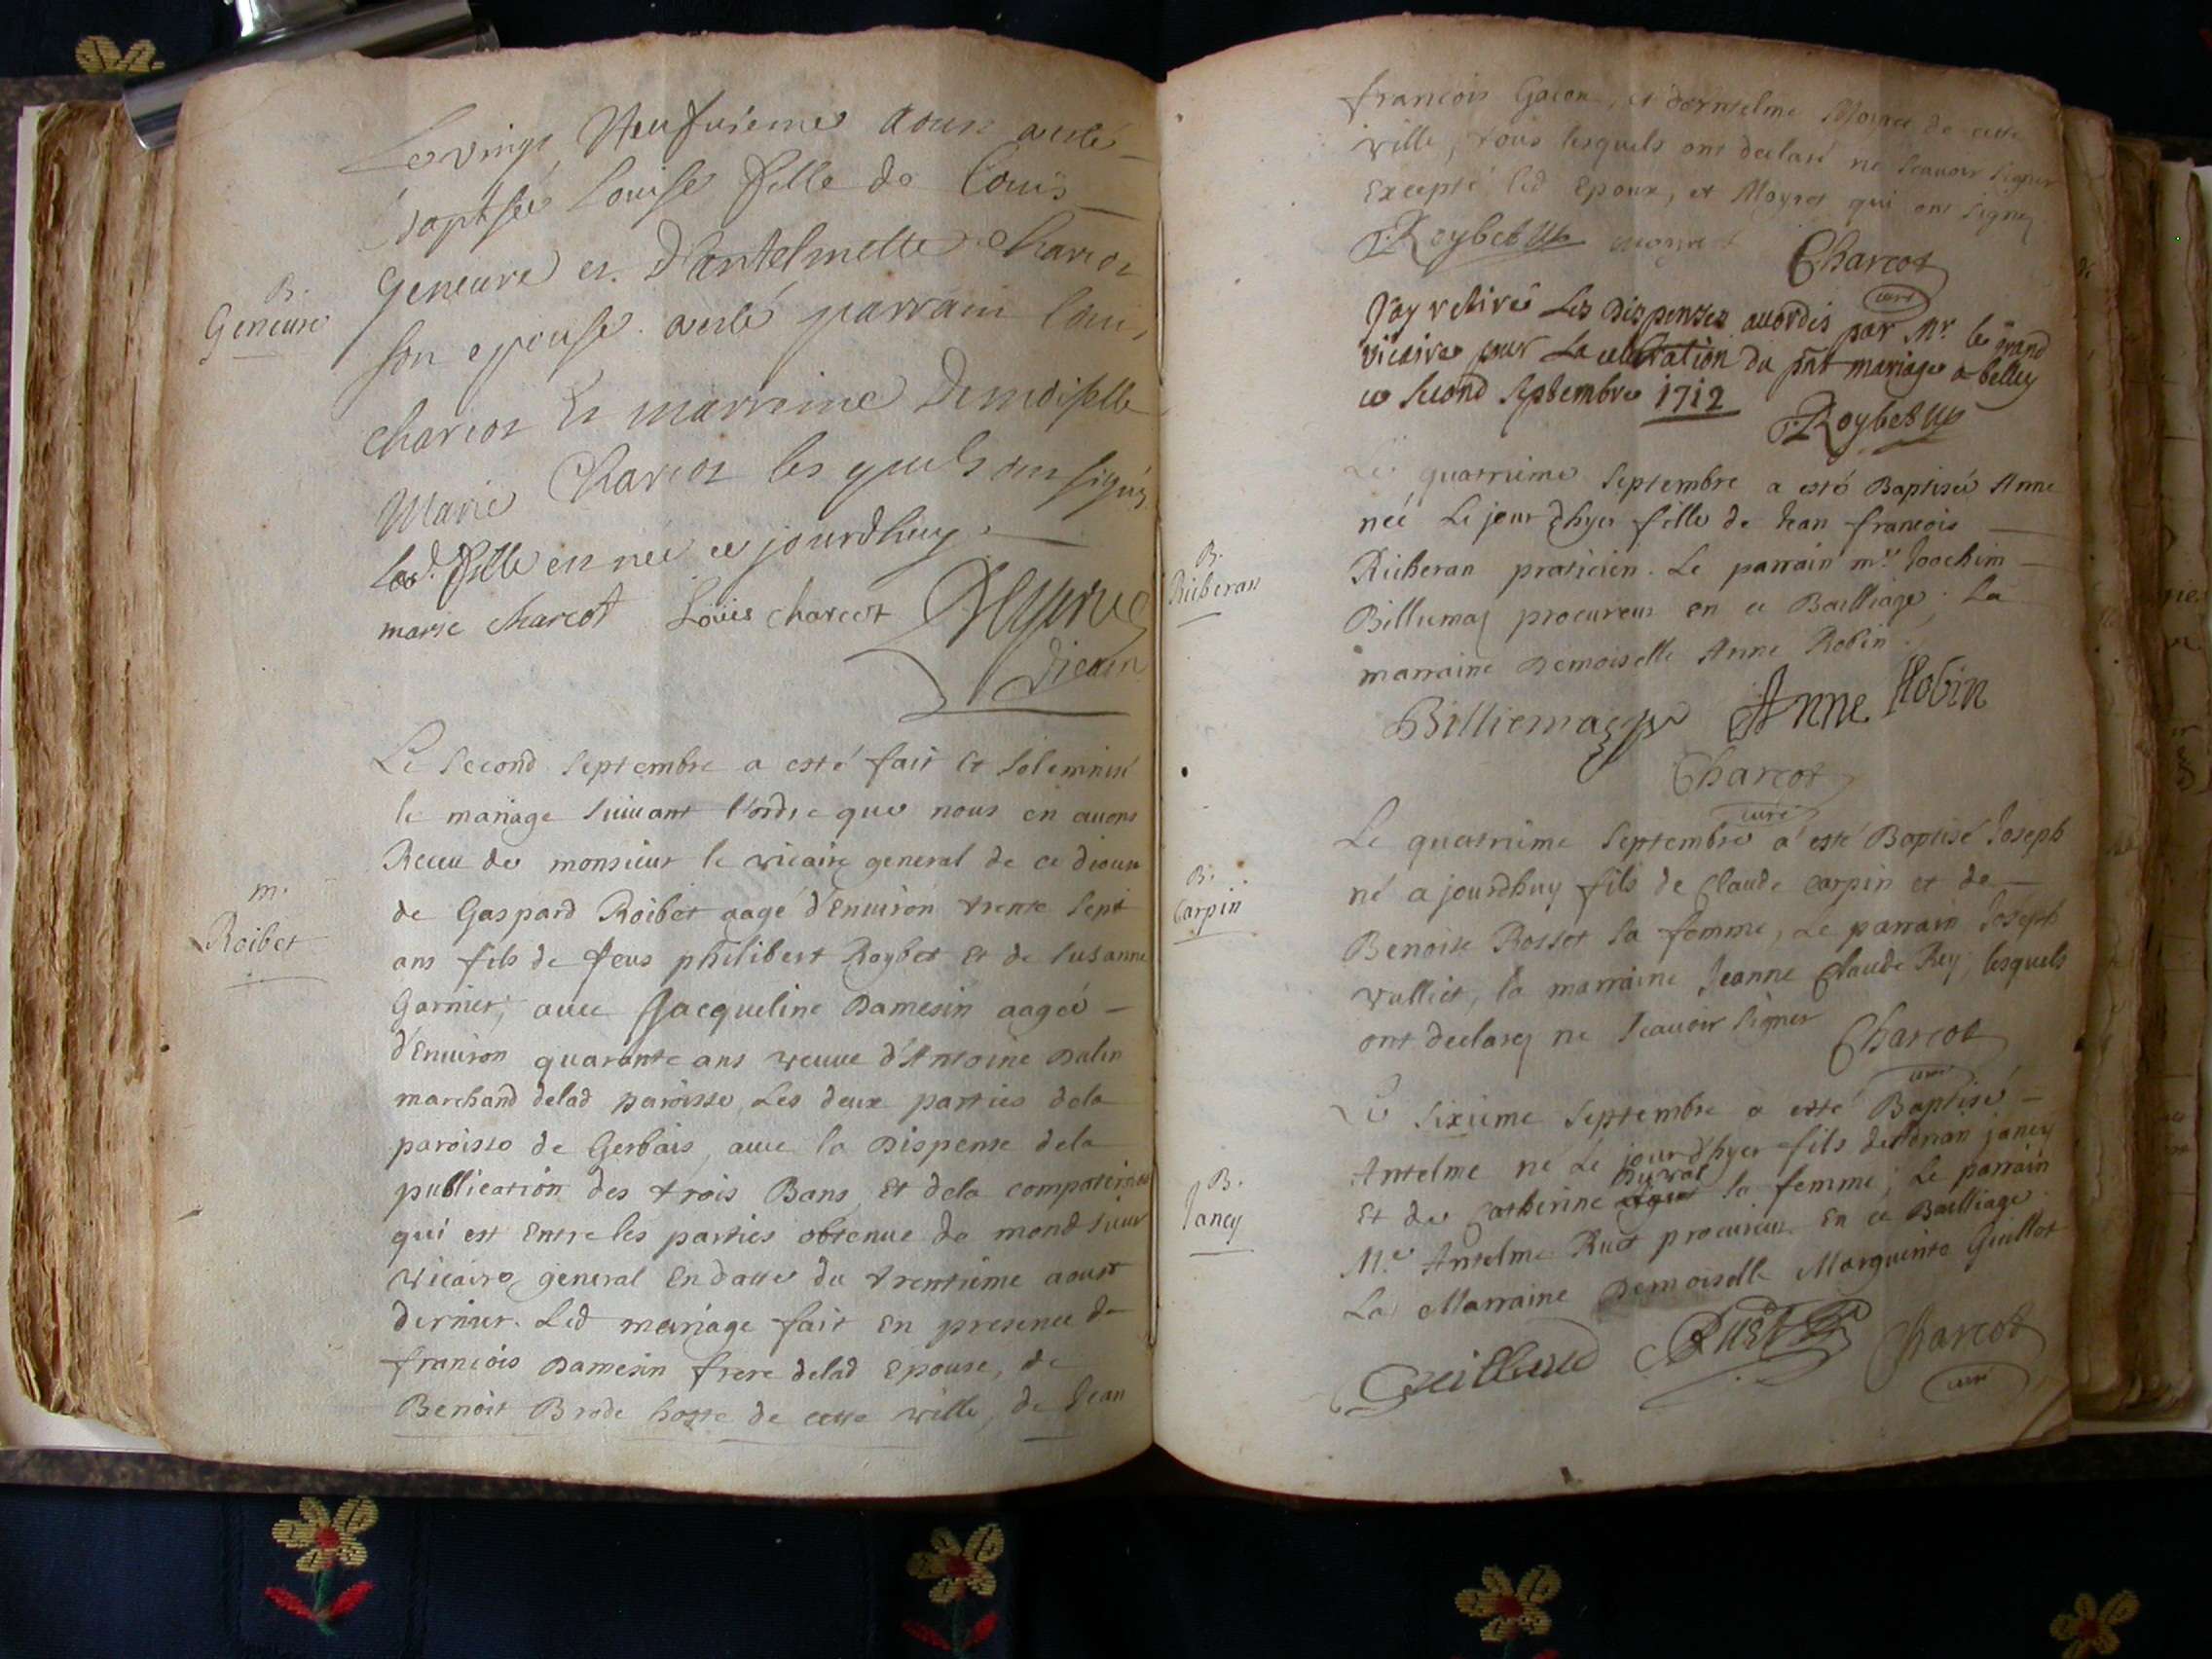 Le vingt Neufuieme aoust a esté
baptisée Louise fille de Louis
B.
Geneure
Geneure et d'Antelmette Charcot
son epouse a esté parrain Louis
Charcot et marraine Demoiselle
Marie Charcot les quels ont signés
lad. fille est née ce jourdhuy
marie charcot Loüis charcot
Vicaire
Le second septembre a esté fait et solemnisé
le mariage suiuant l'ordre que nous en auons
Receu de monsieur le vicaire general de ce diocese
m.
Roibet
de Gaspard Roibet aagé d'enuiron trente sept
ans fils de feus philibert Roybet et de susanne
Garnier, auec Jacqueline Damesin aagée
d'enuiron quarante ans veuue d'Antoine Dulin
marchand delad paroisse, Les deux parties dela
paroisse de Gerbais, auec la Dispense dela
publication des trois Bans, et dela compaternité
qui est entre les parties obtenue de mond sieur
vicaire general en datte du trentième aoust
dernier. Led mariage fait en presence de
francois Damesin frere delad Epouse, de
Benoit Brode hoste de cette ville, de Jean
francois Gacon, et d'Anthelme Moyret de cette
ville, tous lesquels ont declaré ne scauoir signer
Excepté led Epoux, et Moyret qui ont signez
Roybet moyret Charcot
curé
J'ay retiré Les Dispenses accordés par Mr. le grand
vicaire pour La celebration du pñt mariage a belley
ce second septembre 1712
Roybet
Le quatrieme septembre a esté Baptisée Anne
née Le jour d'hyer fille de Jean francois
B.
Richeran
Richeran praticien. Le parrain mre Joachim
Billiemaz procureur en ce Bailliage, La
marraine Demoiselle Anne Robin
Billiemaz Anne Robin
Charcot
curé
Le quatrieme septembre a esté Baptisé Joseph
B.
Carpin
né aujourdhuy fils de Claude Carpin et de
Benoite Rosset sa femme, Le parrain Joseph
Vulliet, la marraine Jeanne Claude Rey, lesquels
ont declarez ne scauoir signer Charcot
curé
Le sixieme septembre a esté Baptisé
Antelme né Le jour d'hyer fils de Adrian Jancy
B.
Jancy
Duval
Et de Catherine sa femme, Le parrain
Me Antelme Ruet procureur en ce Bailliage
La Marraine Demoiselle Marguerite Guillot
Ruet Charcot
curé